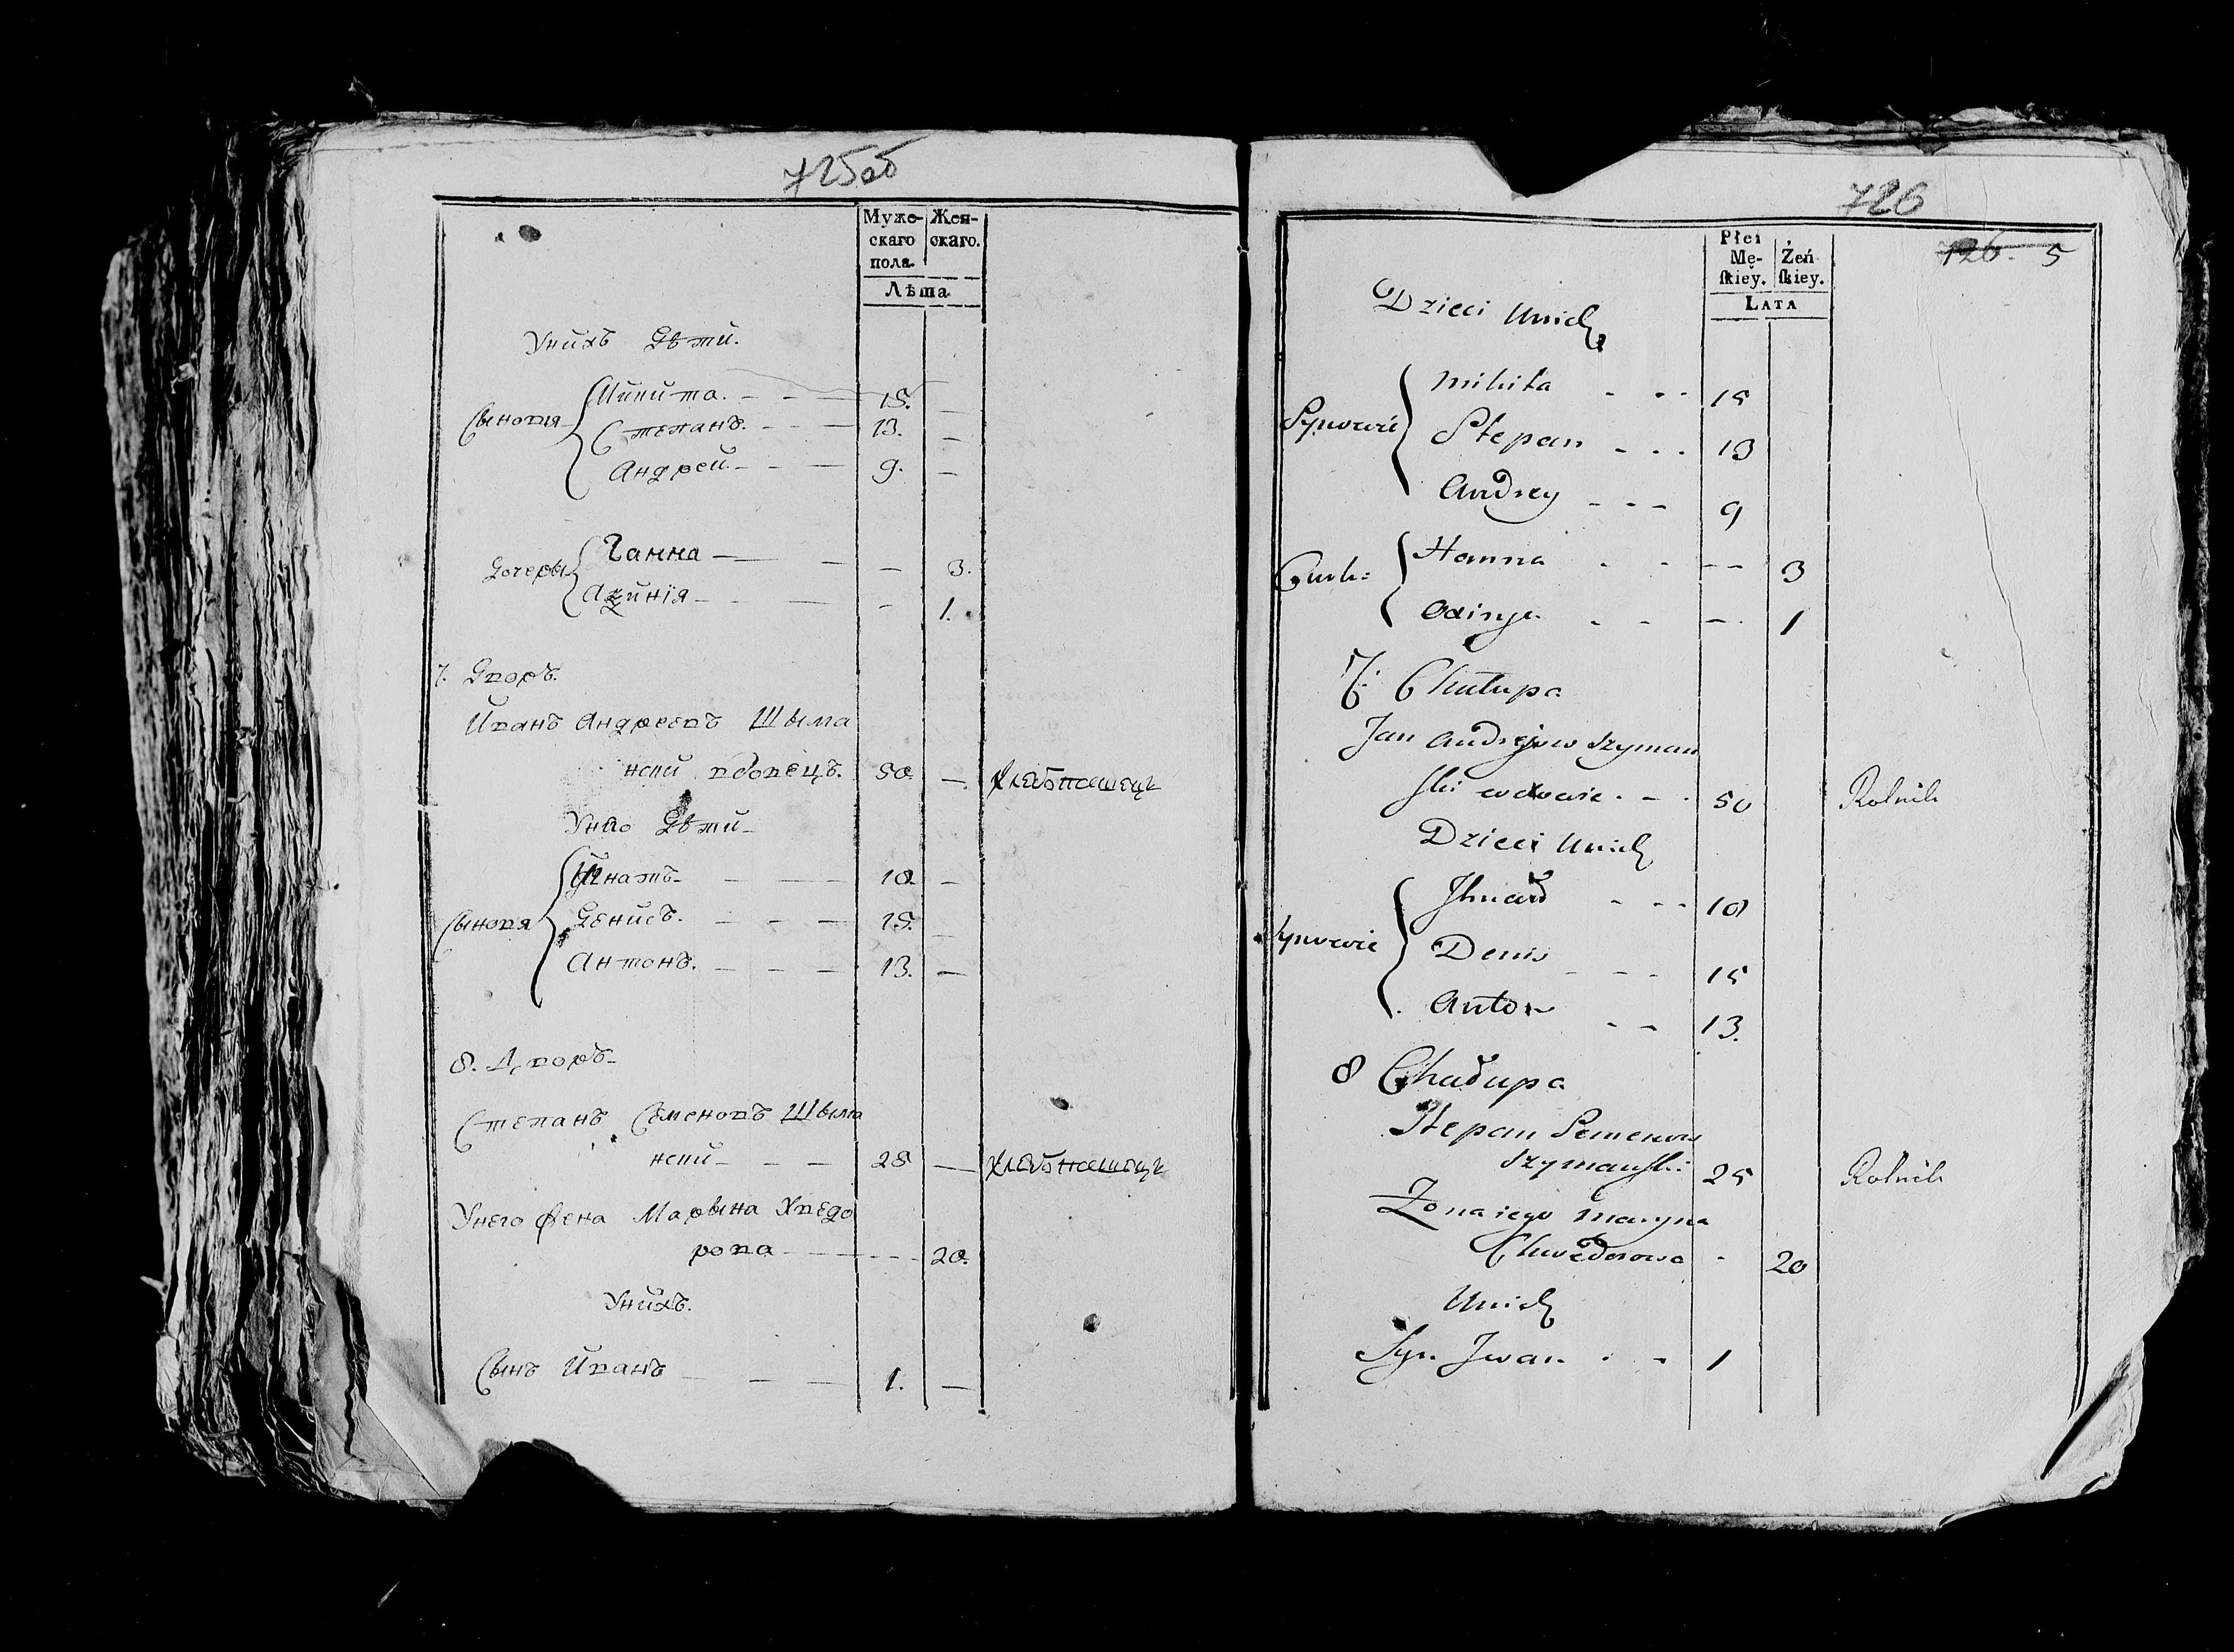 725об
Муже- Жен-
скаго скаго.
пола.
Лѣта.
Унихъ Дѣти.
Сыновя
Микита. 15.
Степанъ. 13.
Андрей. 9.
Дочеры
Ганна 3.
Аксинія 1.
7. Дворъ.
Иванъ Андреевъ Шыма
нски вдовецъ. 50. Хлебопашецъ
Унго Дѣти
Сыновя
Игнатъ 18
Денисъ. 15.
Антонъ. 13.
8. Дворъ
Степанъ Семеновъ Шыма
нски 25 Хлебопашецъ
Унего Жена Марына Хведо
рова 20.
Унихъ.
Сынъ Иванъ 1.
726
726. 5
Płci
Mę- Żeń
ſkiey. ſkiey.
LATA
Dzieci Unich
Synowie
Mikita 15
Stepan 13
Andrey 9
Curk:
Hanna 3
Oxinya 1
7: Chałupa
Jan Andrejow Szyman
ski wdowie 50 Rolnik
Dzieci Unich
Synowie
Ihnad 18
Denis 15
Anton 13.
8 Chałupa
Stepan Semenow
Szymanski 25 Rolnik
Żona iego Maryna
Chwedorowa 20
Unich
Syn Jwan 1